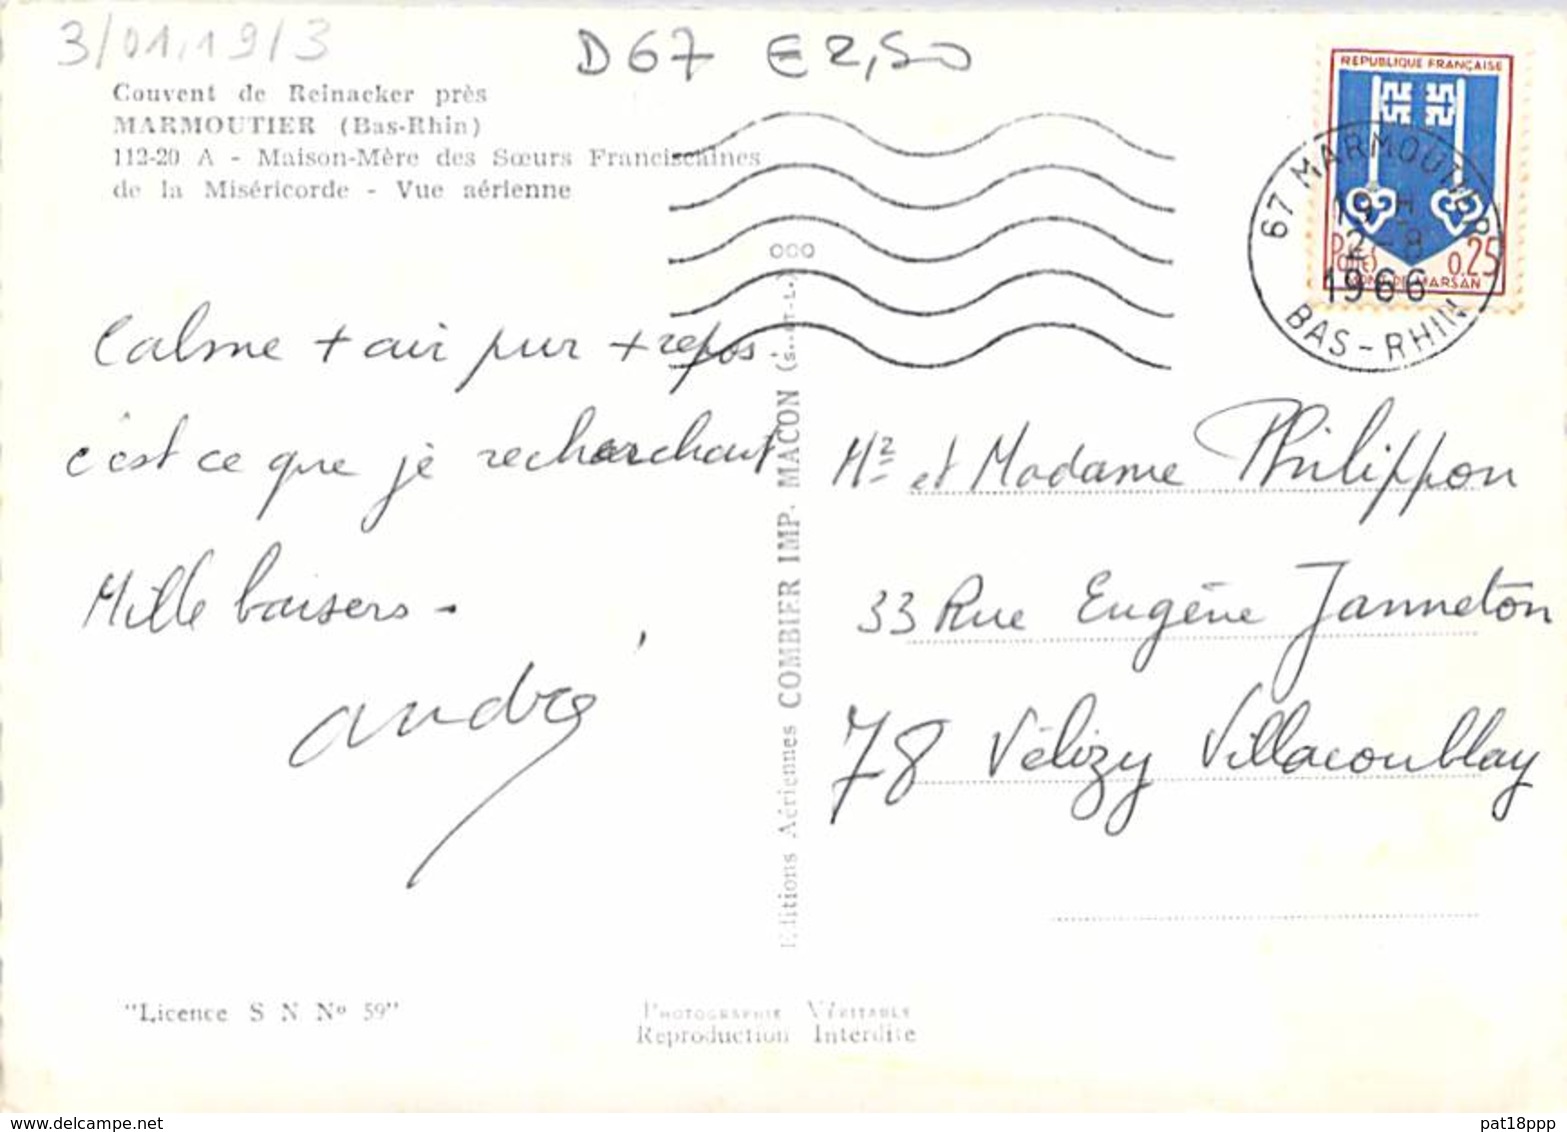 3/01.19/3
D67 €2,50
Couvent de Reinacker près
MARMOUTIER (Bas-Rhin)
112-20 A - Maison-Mère des Sœurs Franciscaines
de la Miséricorde - Vue aérienne
Calme + air pur + repos
c'est ce que je recherchait
Mille baisers -
André
"Licence S N Nº 59"
Editions Aériennes COMBIER IMP. MACON (S.-et-L.)
PHOTOGRAPHIE VÉRITABLE
Reproduction Interdite
REPUBLIQUE FRANÇAISE
0,25
MONT-DE-MARSAN
67 MARMOUTIER
19 H
2-8
1966
BAS-RHIN
Mr et Madame Philippon
33 Rue Eugène Janneton
78 Vélizy Villacoublay
pat18ppp